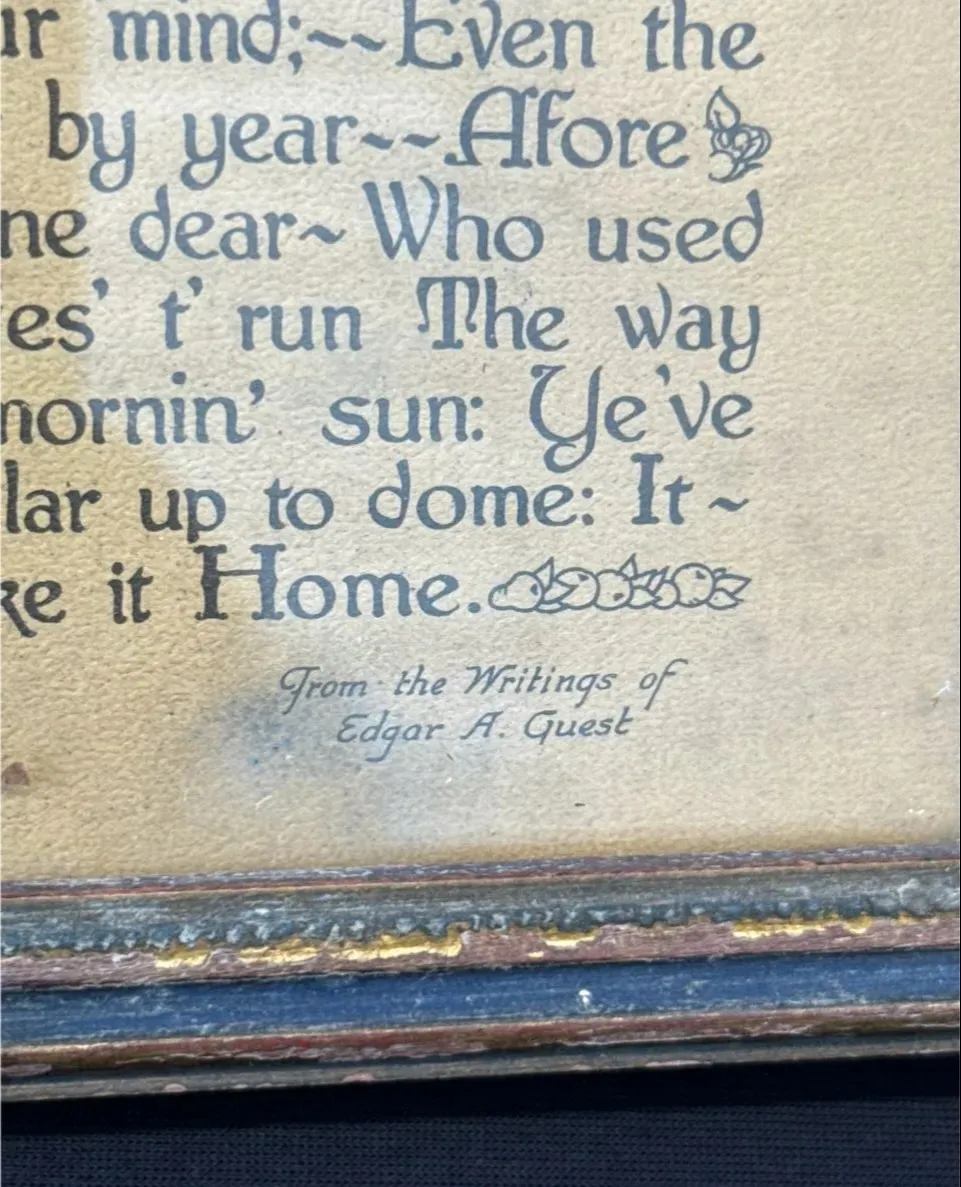 ur mind;~~Even the
by year~~Afore
ne dear~ Who used
es' t' run The way
mornin' sun: Ye've
lar up to dome: It~
ke it Home.
From the Writings of
Edgar A. Guest